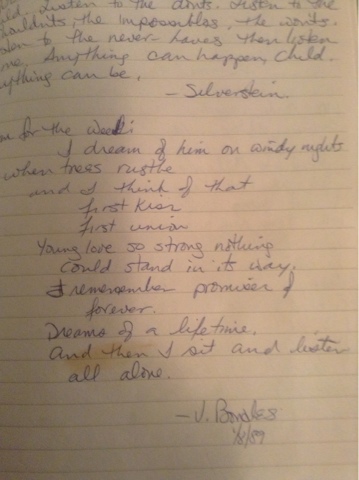 Listen to the don'ts. Listen to the
shouldn'ts, the impossibles, the wonts.
to the never-haves then listen
me. Anything can happen, child.
anything can be.
- Silverstein.
for the week:
I dream of him on windy nights
when trees rustle
and I think of that
first kiss
first union
Young love so strong nothing
could stand in its way.
I rememember promises of
forever.
Dreams of a lifetime.
And then I sit and listen
all alone.
-V.